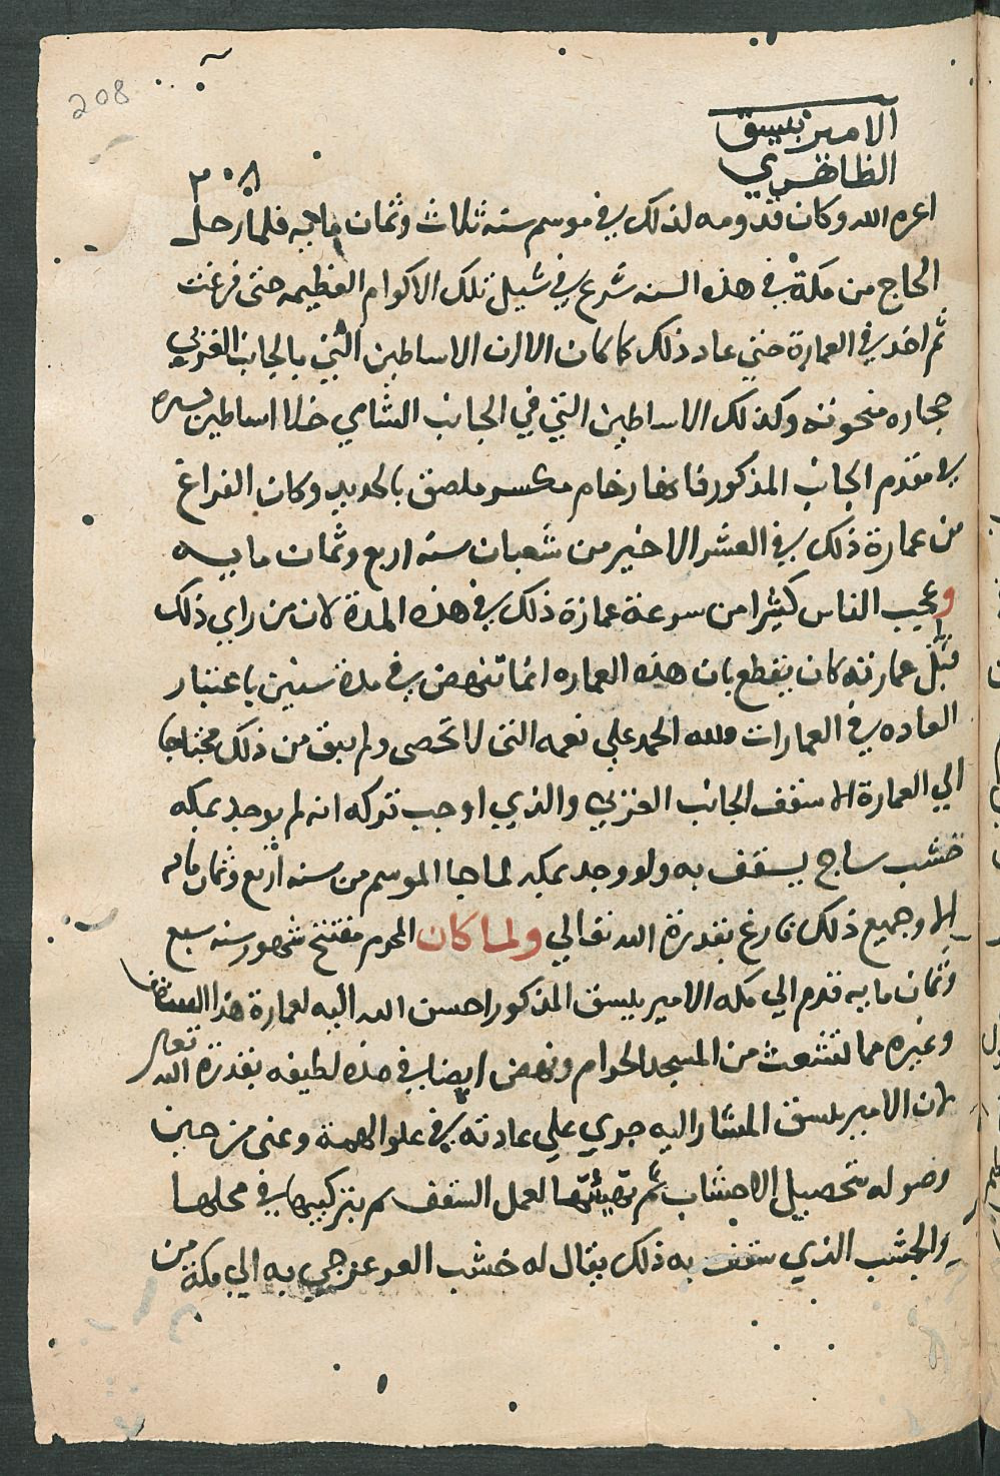 208
الامير بيسق
الظاهري
٢٠٨
اعزه الله وكان قدومه لذلك في موسم سنه ثلاث وثمان مايه فلما رحل
الحاج من مكة في هذه السنه شرع في شيل تلك الاكوام العظيمه حتى فرغت
ثم اخذ في العمارة حتي عاد ذلك كما كان الا ان الاساطين التي بالجانب الغربي
حجاره منحوته وكذلك الاساطين التي في الجانب الشامي خلا اساطين يسيره
في مقدم الجانب المذكور فانها رخام مكسر ملصق بالحديد وكان الفراغ
من عمارة ذلك في العشر الاخير من شعبان سنه اربع وثمان مايه
وعجب الناس كثيرا من سرعة عمارة ذلك في هذه المدة لان من راي ذلك
قبل عمارته كان يقطع بان هذه العماره انما تنهض في مدة سنين باعتبار
العاده في العمارات ولله الحمد علي نعمه التي لا تحصى ولم يبق من ذلك محتاجا
الي العمارة الا سقف الجانب الغربي والذي اوجب تركه انه لم يوجد بمكه
خشب ساج يسقف به ولو وجد بمكه لما جا الموسم من سنه اربع وثمان مايه
الا وجميع ذلك فارغ بقدرة الله تعالي ولما كان المحرم مفتتح شهور سنه سبع
وثمان مايه قدم الي مكه الامير بيسق المذكور احسن الله اليه لعمارة هذا السقف
وغيره مما تشعث من المسجد الحرام ونهض ايضا في مده لطيفه بقدرة الله تعالى
لان الامير بيسق المشار اليه جري علي عادته في علو الهمة وعنى من حين
وصوله بتحصيل الاخشاب ثم تهيئتها لعمل السقف ثم بتركيبها في محلها
والخشب الذي سقف به ذلك يقال له خشب العرعر جي به الي مكة من